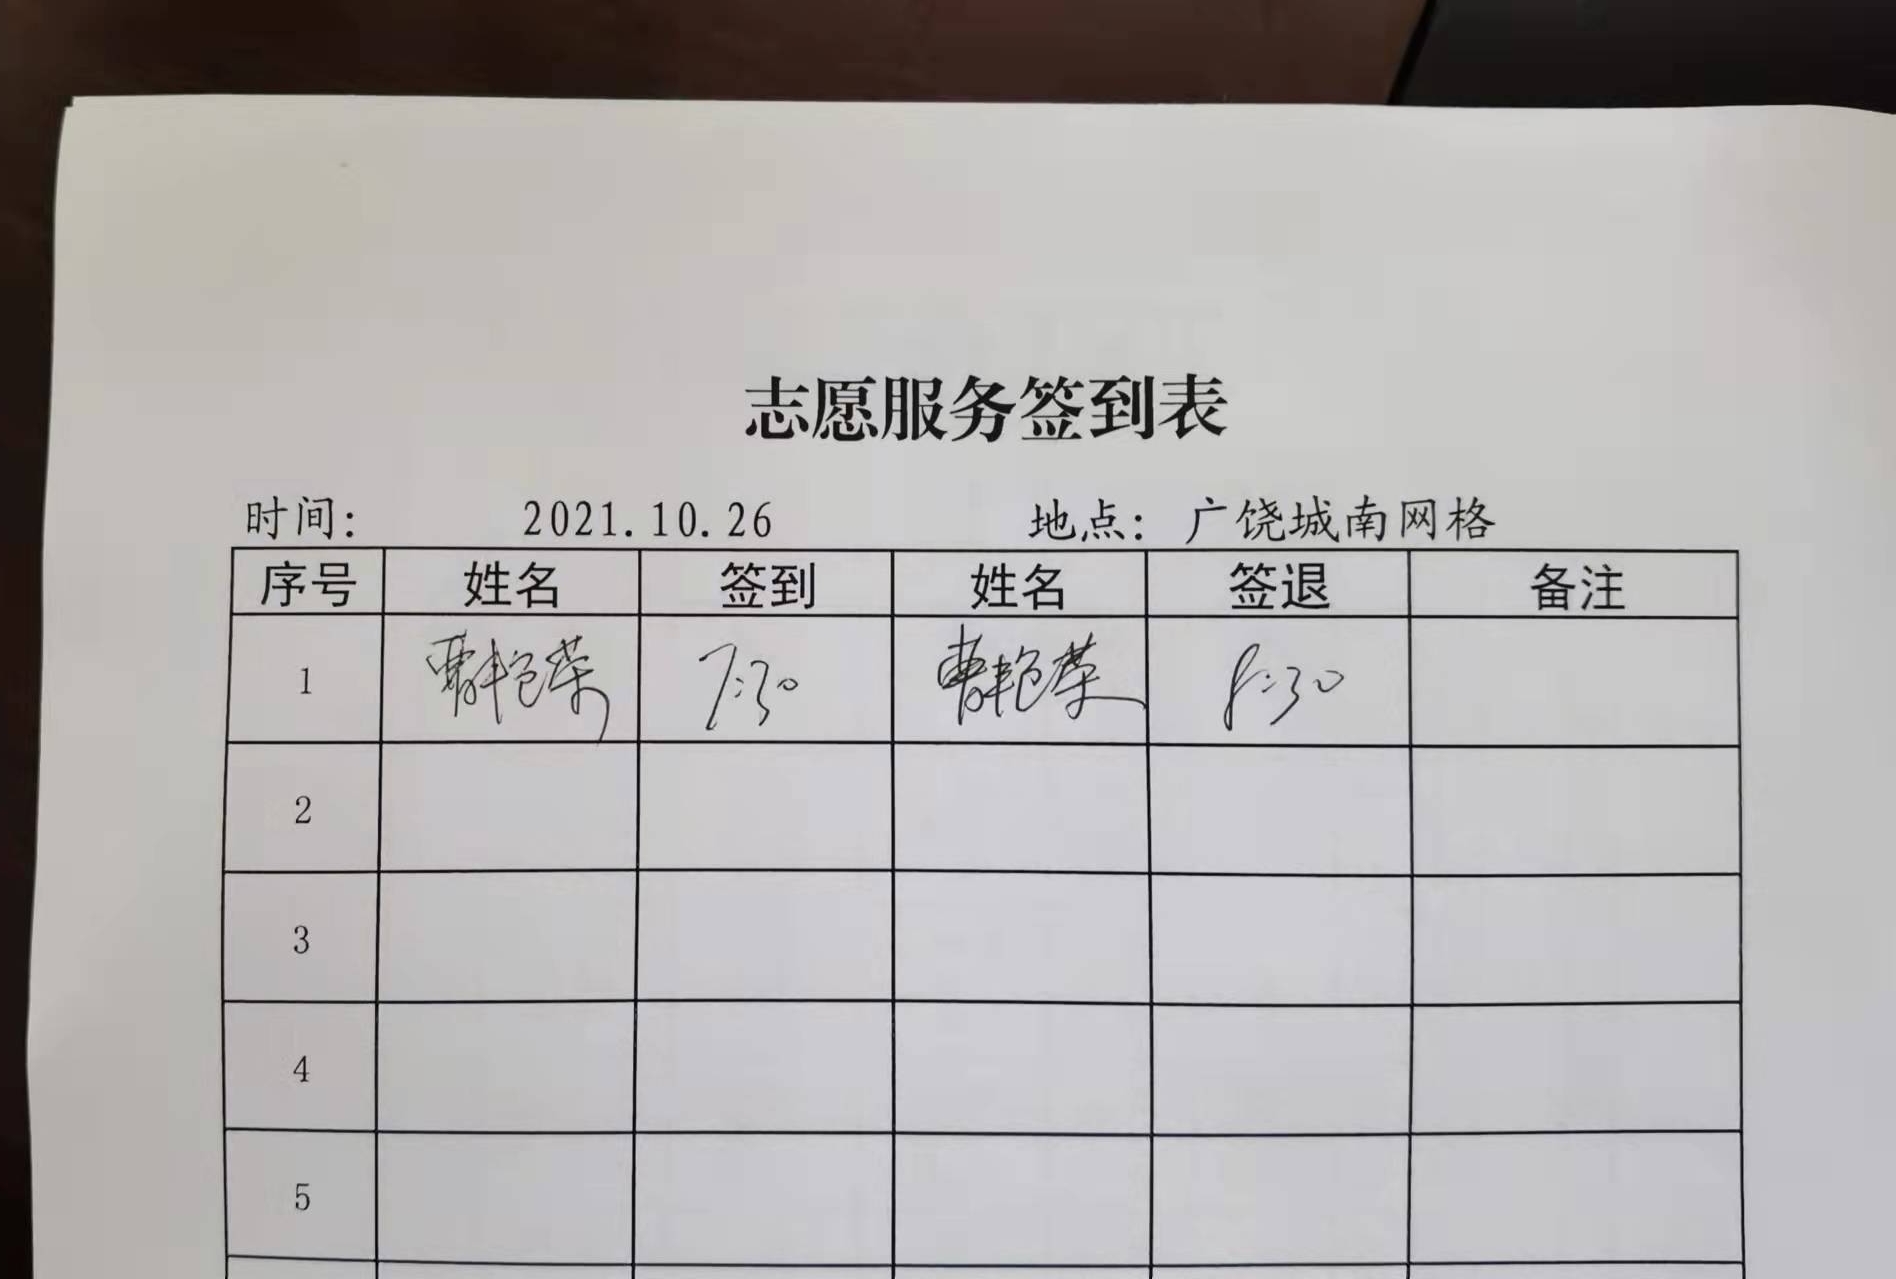 志愿服务签到表
时间： 2021.10.26 地点：广饶城南网格
序号 姓名 签到 姓名 签退 备注
1 曹艳荣 7:30 曹艳荣 8:30
2
3
4
5